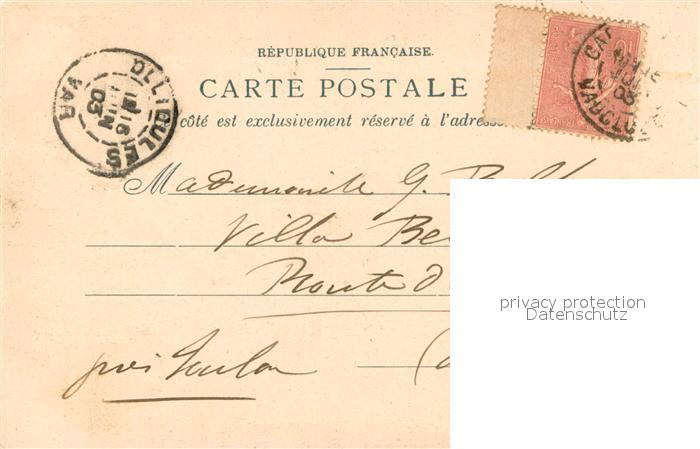 RÉPUBLIQUE FRANÇAISE.
CARTE POSTALE
côté est exclusivement réservé à l'adresse
OLLIOULES
16
JUIN
03
VAR
Mademoiselle G.
Villa
Route
près Toulon
privacy protection
Datenschutz